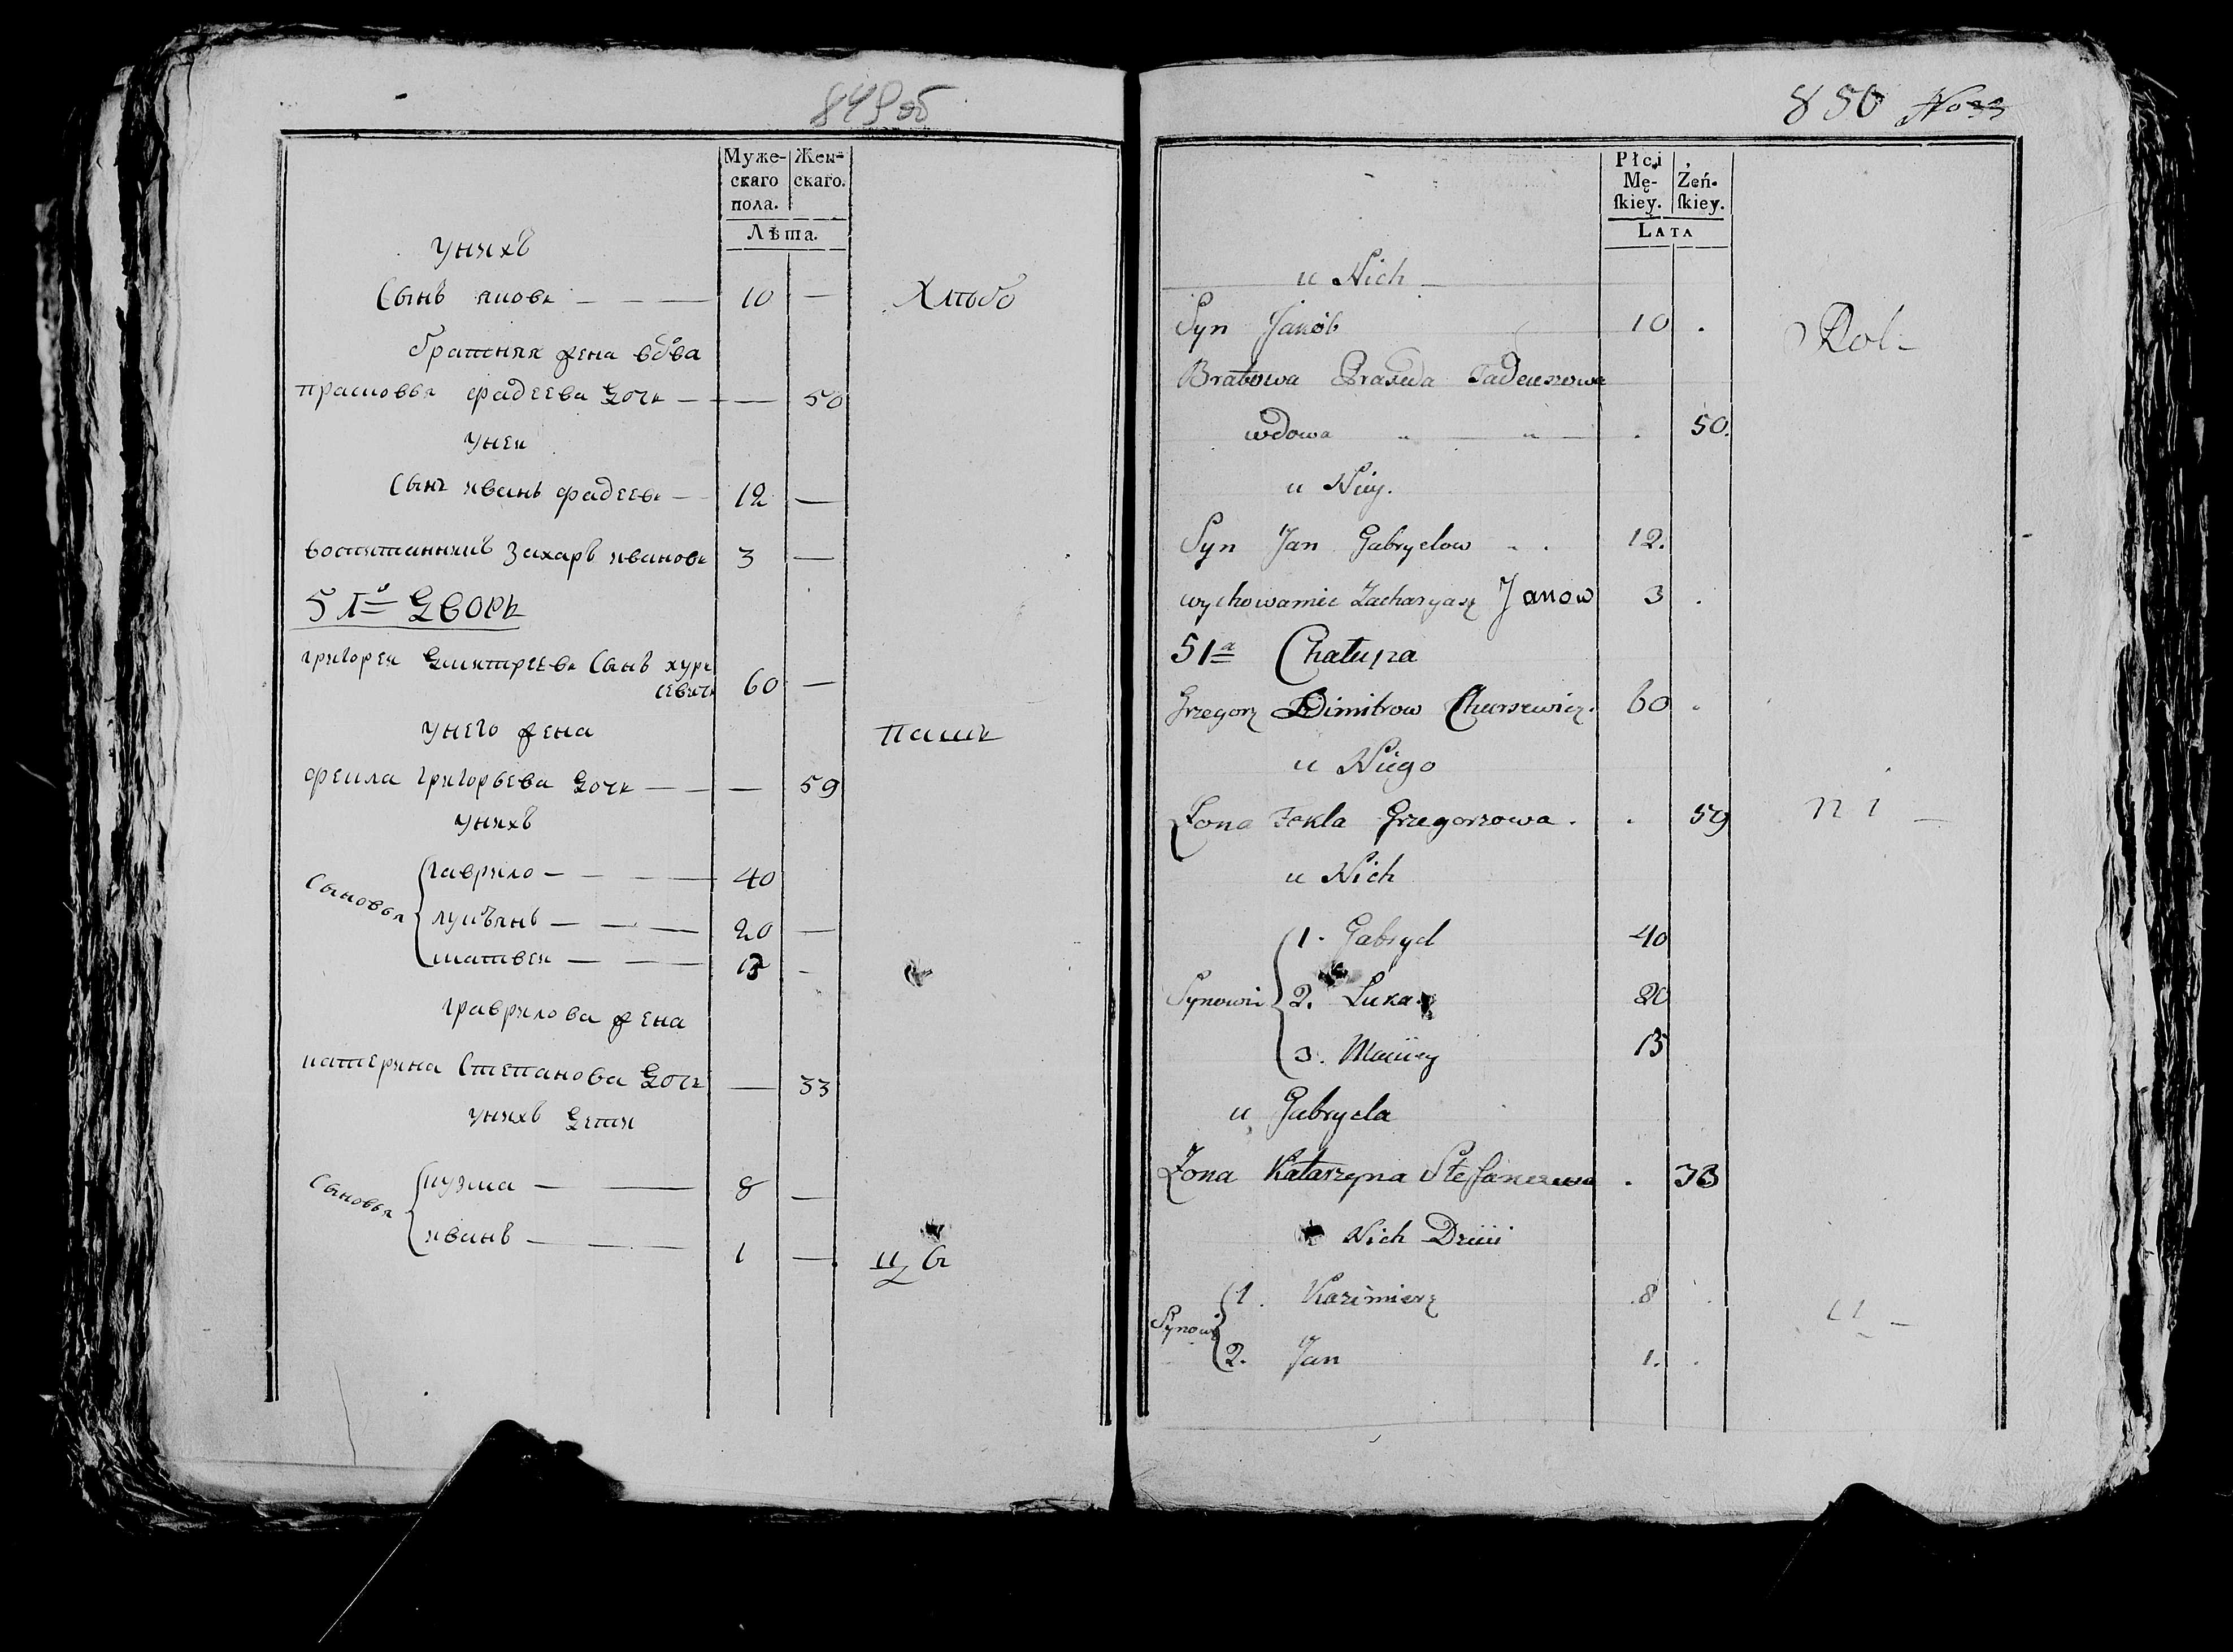 849 об
Муже-
скаго
пола.
Жен-
скаго.
Лѣта.
унихъ
Сынъ яковъ — — — 10 —
Хлѣбо
братняя жена вдова
прасковья фадеева дочь — — 50
унеи
Сынъ иванъ фадеевъ — 12 —
воспитанникъ Захаръ ивановъ 3 —
51й дворъ
григореи дмитреевъ Сынъ хур
севичъ 60 —
унего жена
пашъ
фекла григорьева дочь — — — 59
унихъ
Сыновья
гаврило — — — 40
лукъянъ — — — 20 —
матвеи — — — 13 -
гаврилова жена
катерина Степанова дочь — 33
унихъ дети
Сыновья
кузма — — 8 —
иванъ — — — 1 —
850 No 33
Płci
Mę-
ſkiey.
Żeń-
ſkiey.
LATA
u Nich
Syn Jakób 10 .
Rol-
Bratowa Praxeda Tadeuszowa
wdowa " — " — . 50.
u Niey.
Syn Jan Gabryelow . . 12.
wychowaniec Zacharyasz Janow 3 .
51a Chałupa
Grzegorz Dimitrow Chursewicz. 60 .
u Niego
Żona Tekla Grzegorzowa . . 59
ni —
u Nich
Synowie
1. Gabryel 40
2. Lukasz 20
3. Maciey 13
u Gabryela
Żona Katarzyna Stefanowa . 33
Nich Dzieci
Synowie
1. Kazimierz 8 .
2. Jan 1. .